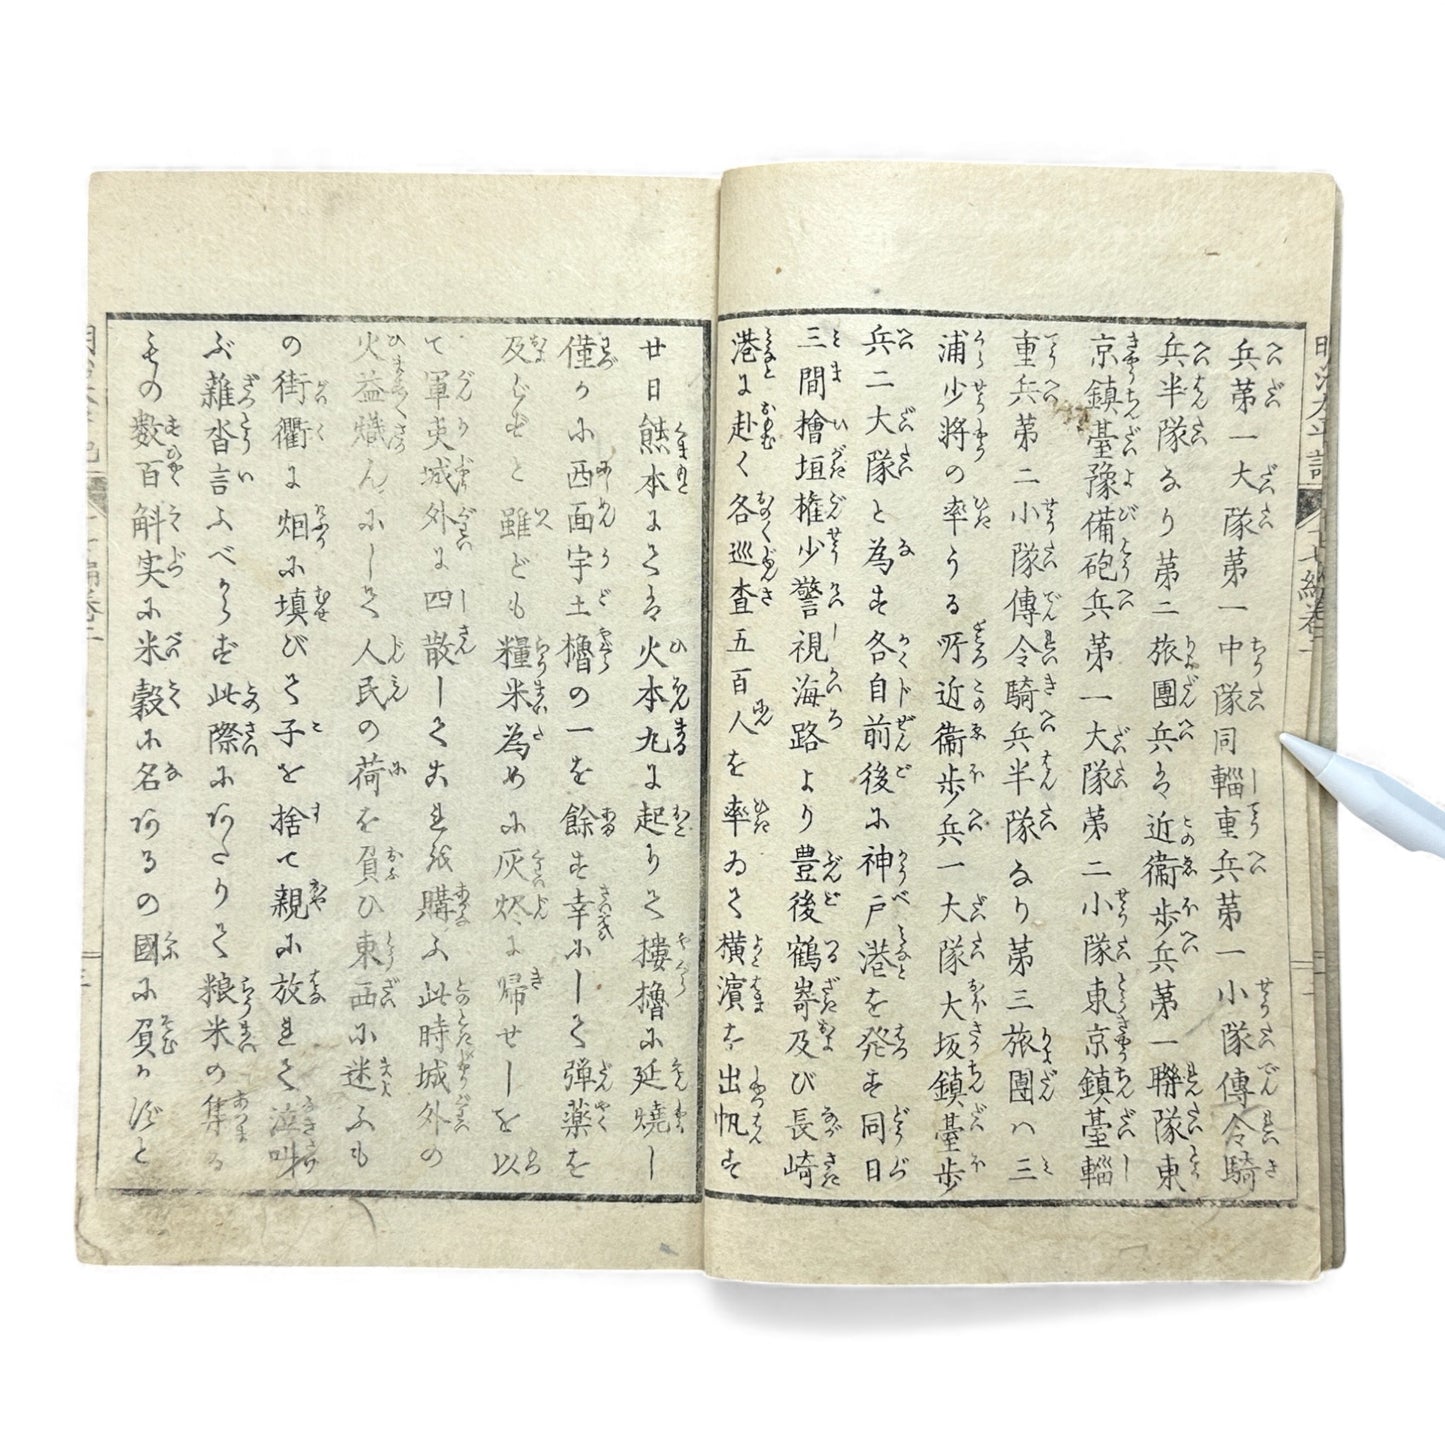 兵第一大隊第一中隊同輜重兵第一小隊傳令騎
兵半隊なり第二旅團兵は近衞歩兵第一聯隊東
京鎮臺豫備砲兵第一大隊第二小隊東京鎮臺輜
重兵第二小隊傳令騎兵半隊なり第三旅團ハ三
浦少将の率うる所近衞歩兵一大隊大坂鎮臺歩
兵二大隊と為す各自前後に神戸港を発す同日
三間檜垣権少警視海路より豊後鶴嵜及び長崎
港に赴く各巡査五百人を率ゐて横濱を出帆す
廿日熊本にては火本丸に起りて摟櫓に延燒し
僅かに西面宇土櫓の一を餘す幸にして弾薬を
及ばずと雖ども糧米為めに灰烬に帰せしを以
て軍吏城外に四散して是を購ふ此時城外の
火益熾んにして人民の荷を負ひ東西に迷ふも
の街衢に烟に填びて子を捨て親に放れて泣叫
ぶ雑沓言ふべからず此際にありて粮米の集る
もの数百斛実に米穀に名あるの國に負かずと
明治太平記
十七編巻二